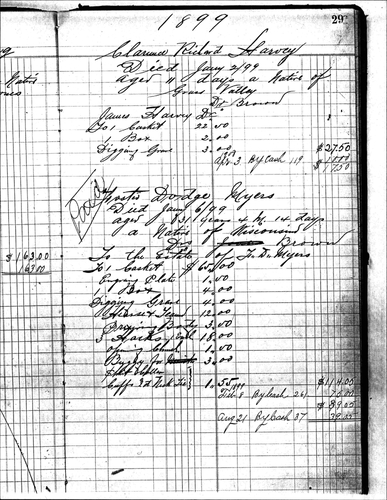 1899
29
Clarence Richard Harvey
Died Jany 2/99
aged 11 days a Native of
Grass Valley
Dr Brown
James Harvey Dr
To 1 Casket 22.50
1 Box 2.00
Digging Grave 3.00
$27.50
Apr 3 By Cash 119
1000
1750
Paid
Foster Dodge Myers
Died Jany 6/99
aged 31 years 4 M. 14 days
a Native of Wisconsin
Drs Brown
To the Estate of F. D. Myers
To 1 Casket $65.00
Engving Plate 1.50
1 Box 4.00
Digging Grave 4.00
Hearse & Team 12.00
Body 3.00
5 Hacks 18.00
opening 1.50
Buggy for 3.00
Cuffs & Neck Tie 1.55
$163.00
163.00
1899
$114.05
Feb 8 By Cash 261
75.00
$39.05
Aug 21 By Cash 37
39.05